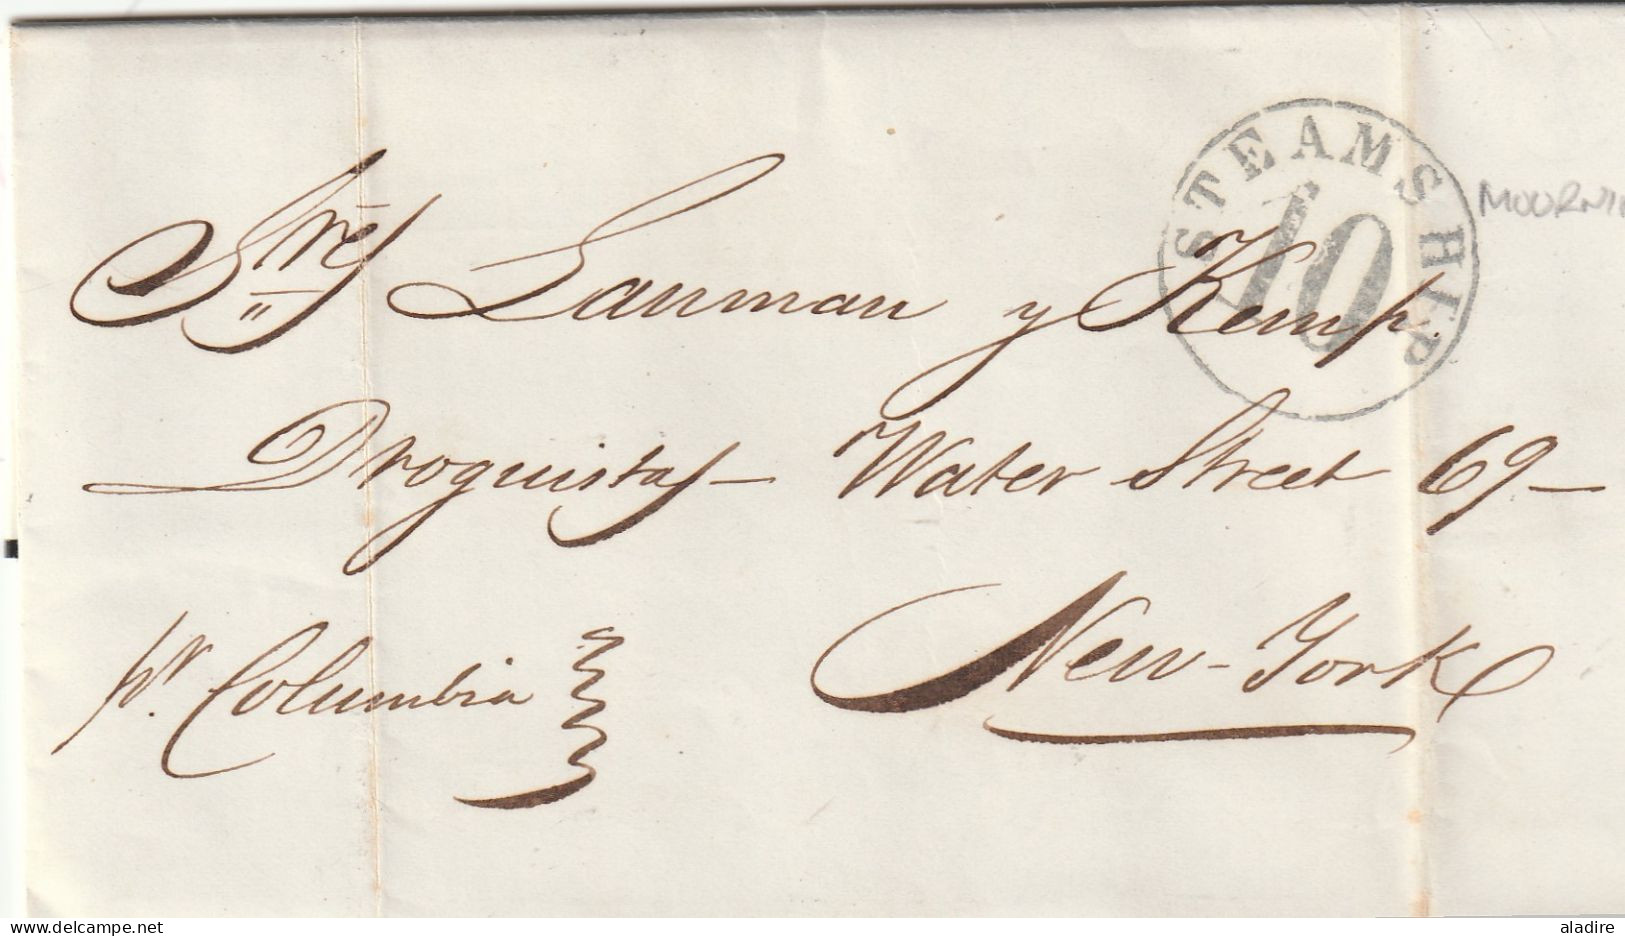 STEAMSHIP
10
MOURNI
Sres Lanman y Kemp.
Droguistas — Water Street 69 —
New-York
pr. Columbia
delcampe.net
aladire